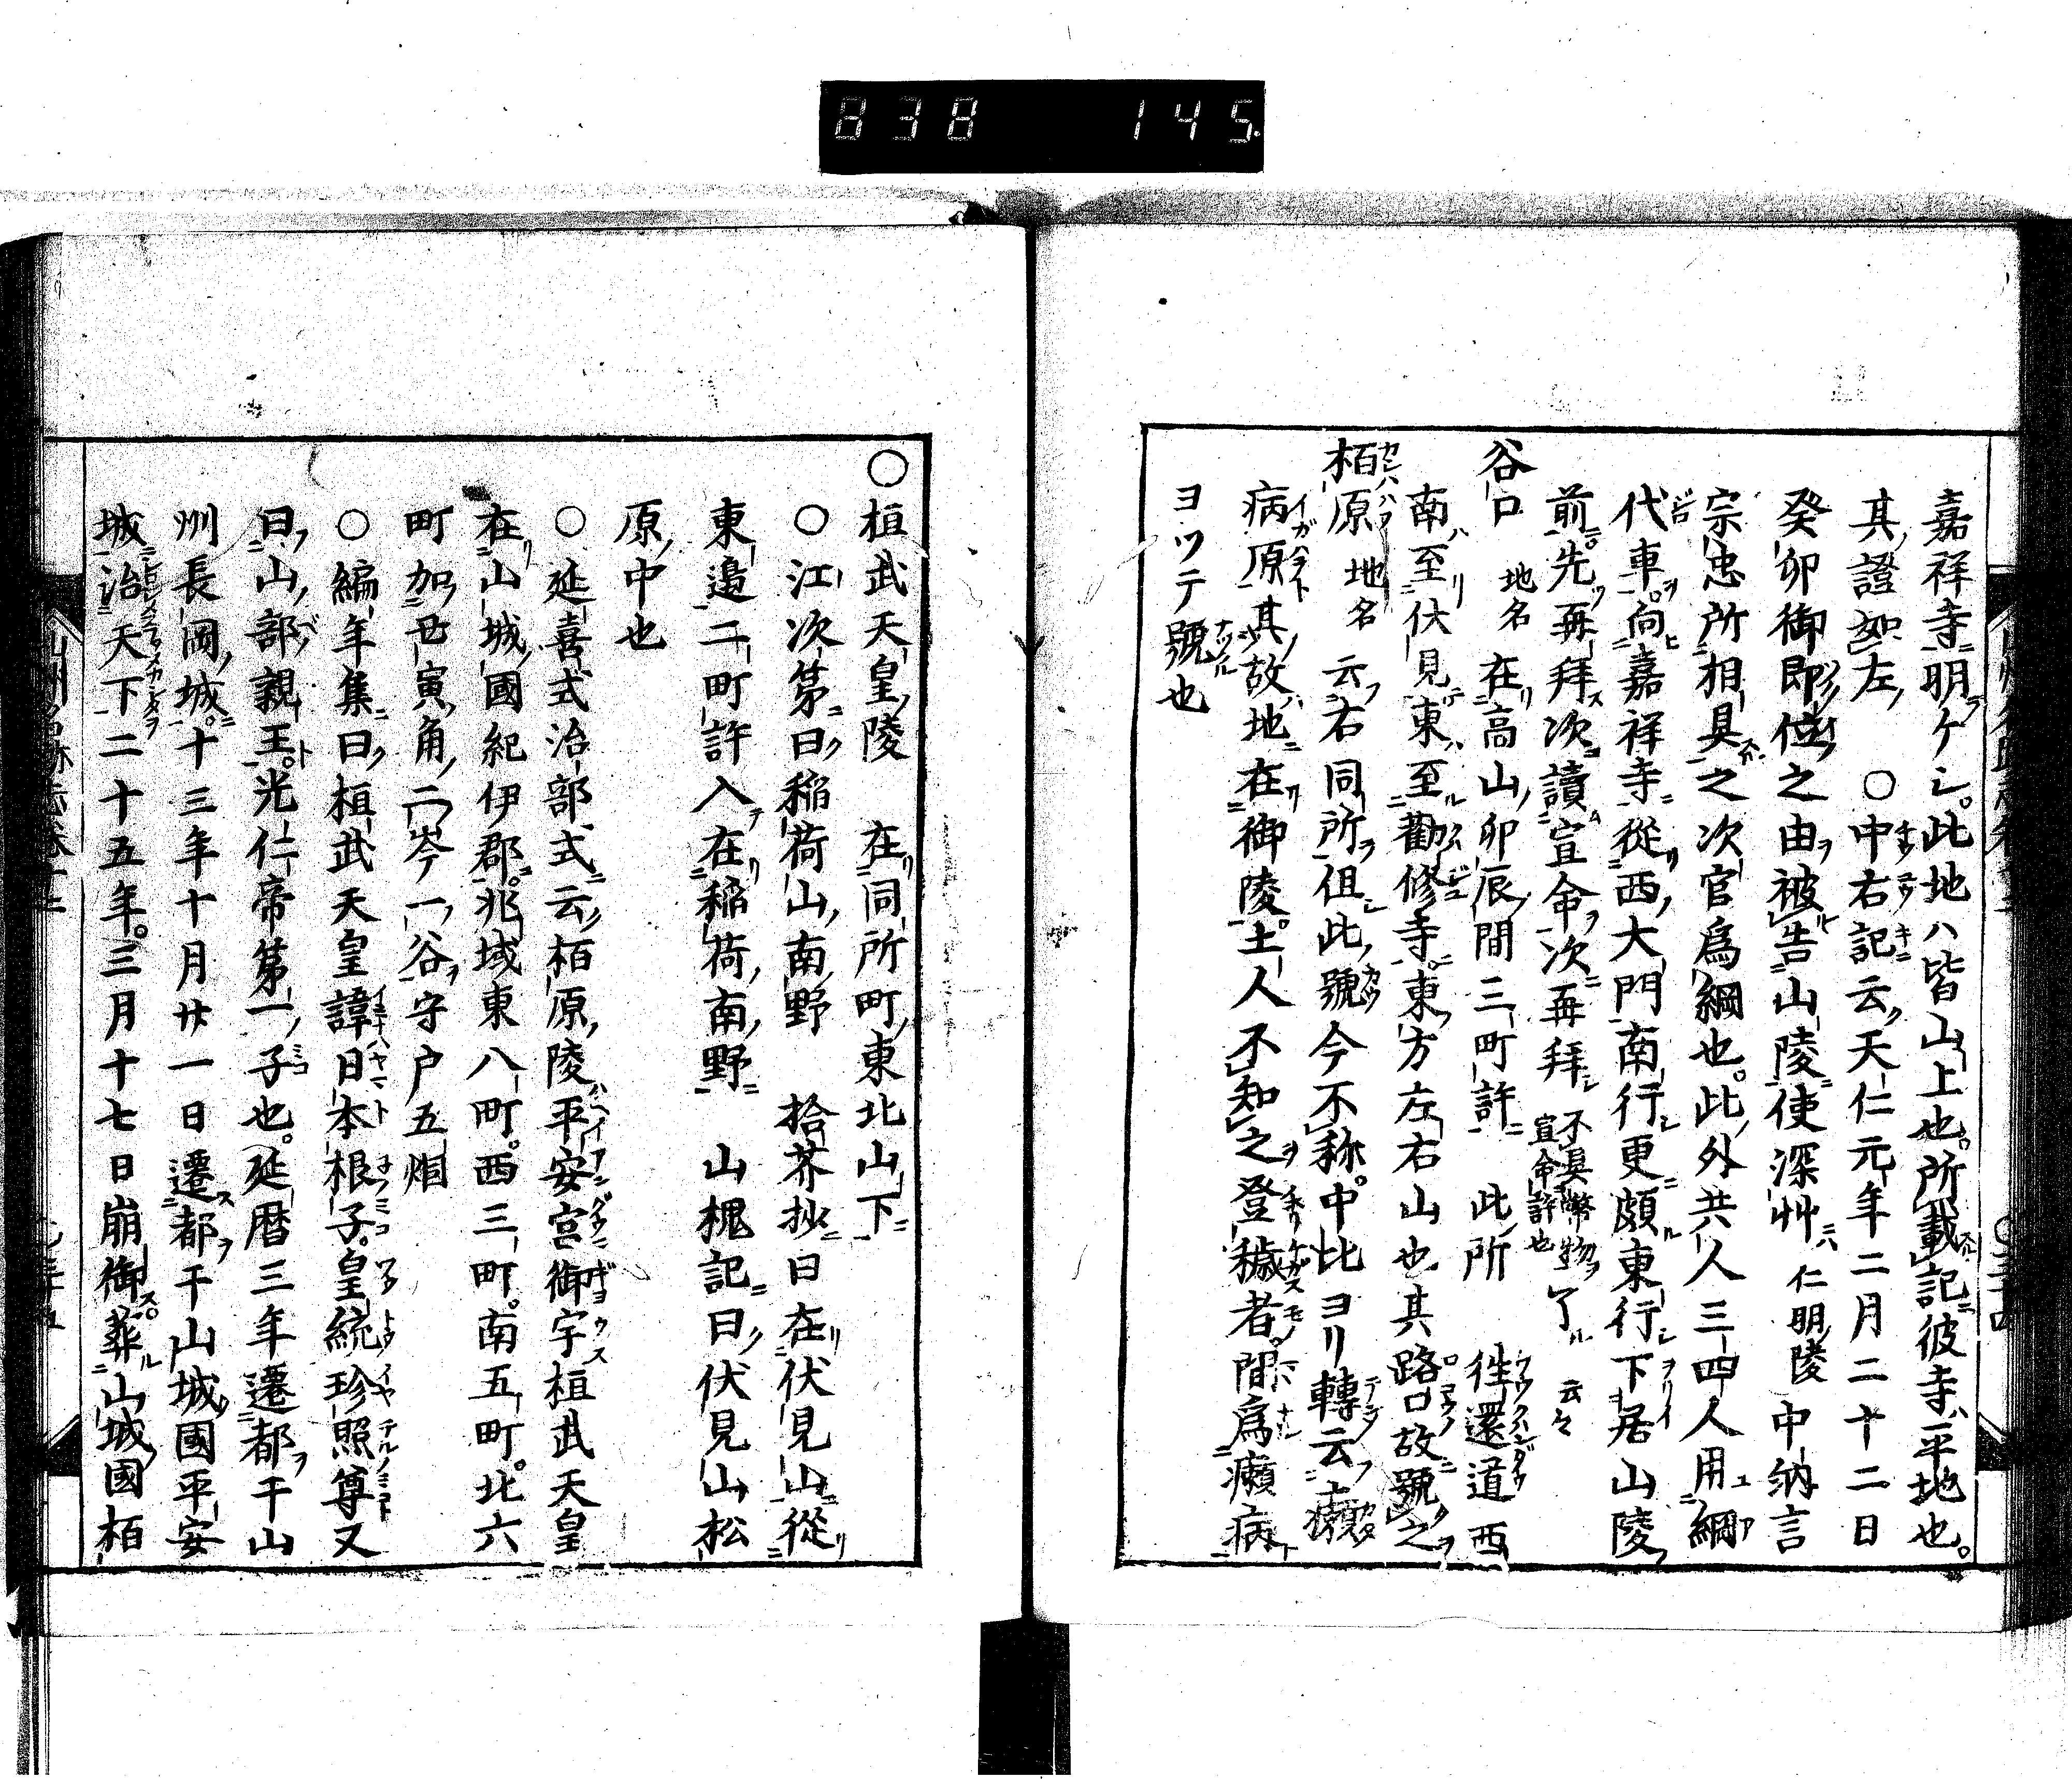 838 145
嘉祥寺明ケシ。此地ハ皆山上也。所載記彼寺平地也。
其證如左 ○中右記云天仁元年二月二十二日
癸卯御即位之由被告山陵使深艸 仁明陵 中納言
宗忠所相具之次官爲綱也。此外共人三四人用綱
代車。向嘉祥寺從西大門南行更頗東行下居山陵
前。先再拜次讀宣命次再拜 不具幣物宣命許也 了 云々
谷口 地名 在高山卯辰間三町許 此所 徃還道西
南至伏見東至勸修寺。東方左右山也其路口故號之
栢原 地名 云右同所但此號今不称。中比ヨリ轉云癩
病原其故地在御陵。土人不知之登穢者。間爲癩病
ヨツテ號也
○桓武天皇陵 在同所町東北山下
○江次第曰稲荷山南野 拾芥抄曰在伏見山從
東邉二町許入在稲荷南野 山槐記曰伏見山松
原中也
○延喜式治部式云栢原陵平安宮御宇桓武天皇
在山城國紀伊郡。兆域東八町。西三町。南五町。北六
町加丑寅角二岑一谷守戸五烟
○編年集曰桓武天皇諱日本根子皇統珍照尊又
曰山部親王。光仁帝第一子也。延暦三年遷都于山
州長岡城。十三年十月廿一日遷都于山城國平安
城治天下二十五年。三月十七日崩御葬山城國栢